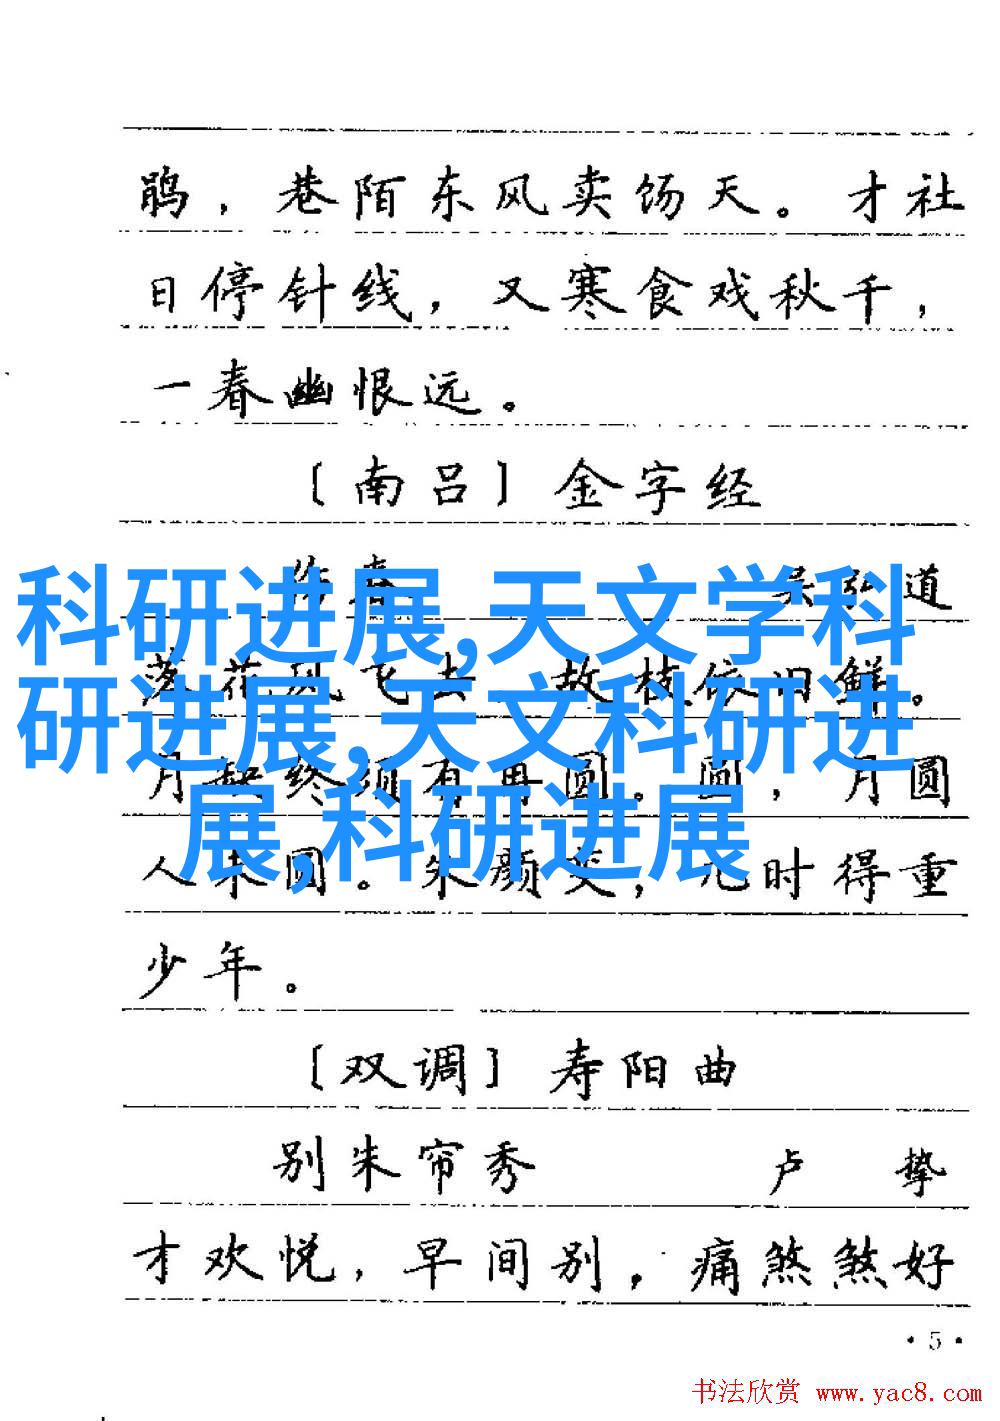 鹃，巷陌东风卖饧天。才社
日停针线，又寒食戏秋千，
一春幽恨远。
〔南吕〕金字经
伤春 吴弘道
落花风飞去，故枝依旧鲜。
月缺终须有再圆。圆，月圆
人未圆。朱颜变，几时得重
少年。
〔双调〕寿阳曲
别朱帘秀 卢 挚
才欢悦，早间别，痛煞煞好
·5·
科研进展,天文学科
研进展,天文科研进
展,科研进展
书法欣赏 www.yac8.com